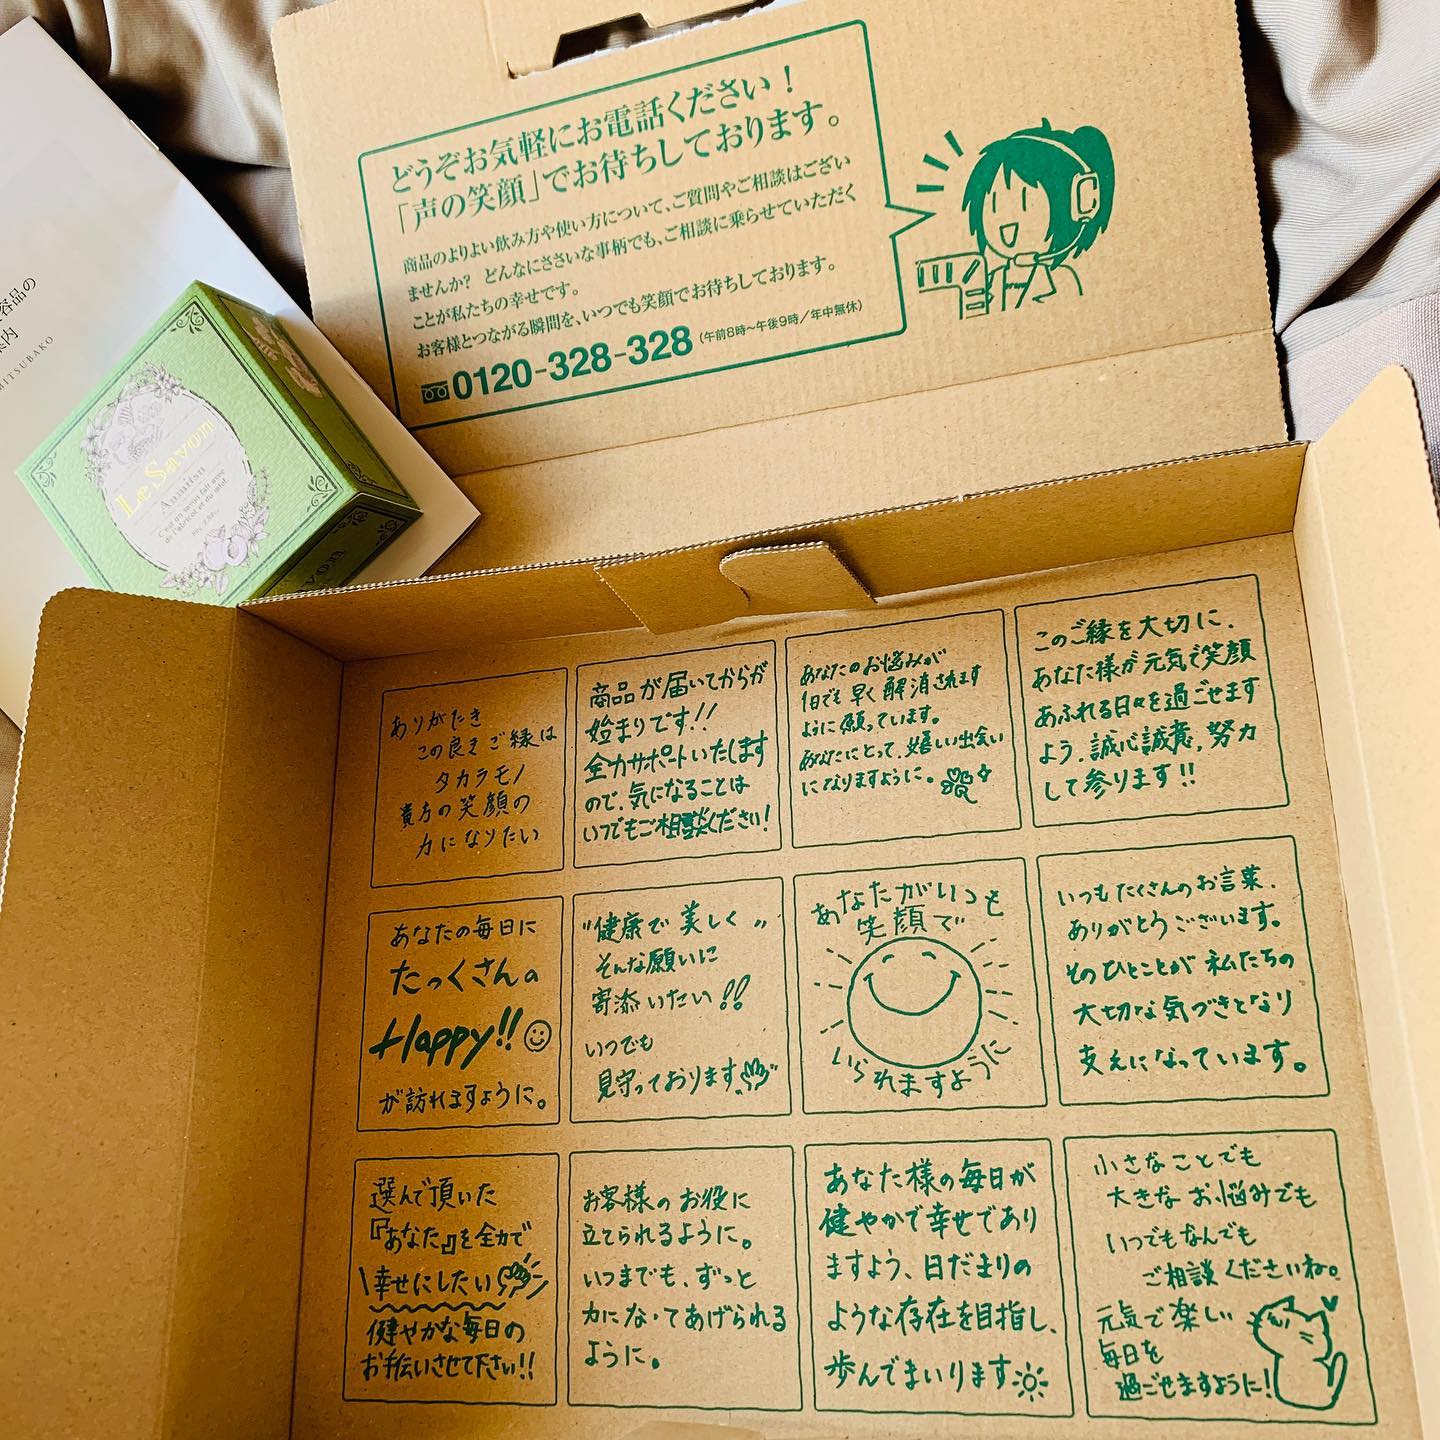 どうぞお気軽にお電話ください！
「声の笑顔」でお待ちしております。
商品のよりよい飲み方や使い方について、ご質問やご相談はござい
ませんか? どんなにささいな事柄でも、ご相談に乗らせていただく
ことが私たちの幸せです。
お客様とつながる瞬間を、いつでも笑顔でお待ちしております。
0120-328-328 (午前8時〜午後9時／年中無休)
容品の
案内
MITSUBAKO
Le Savon
C'est un savon fait avec
de l'abricot et du miel.
ありがたき
この良きご縁は
タカラモノ
貴方の笑顔の
力になりたい
商品が届いてからが
始まりです!!
全力サポートいたします
ので、気になることは
いつでもご相談ください!
あなたのお悩みが
1日でも早く解消されます
ように願っています。
あなたにとって、嬉しい出会い
になりますように。
このご縁を大切に、
あなた様が元気で笑顔
あふれる日々を過ごせます
よう、誠心誠意、努力
して参ります!!
あなたの毎日に
たっくさんの
Happy!!
が訪れますように。
"健康で美しく"
そんな願いに
寄添いたい!!
いつでも
見守っております
あなたがいつも
笑顔で
いられますように
いつもたくさんのお言葉、
ありがとうございます。
そのひとことが私たちの
大切な気づきとなり
支えになっています。
選んで頂いた
『あなた』を全力で
\幸せにしたい
健やかな毎日の
お手伝いさせて下さい!!
お客様のお役に
立てられるように。
いつまでも、ずっと
力になってあげられる
ように。
あなた様の毎日が
健やかで幸せであり
ますよう、日だまりの
ような存在を目指し、
歩んでまいります
小さなことでも
大きなお悩みでも
いつでもなんでも
ご相談くださいね。
元気で楽しい
毎日を
過ごせますように!